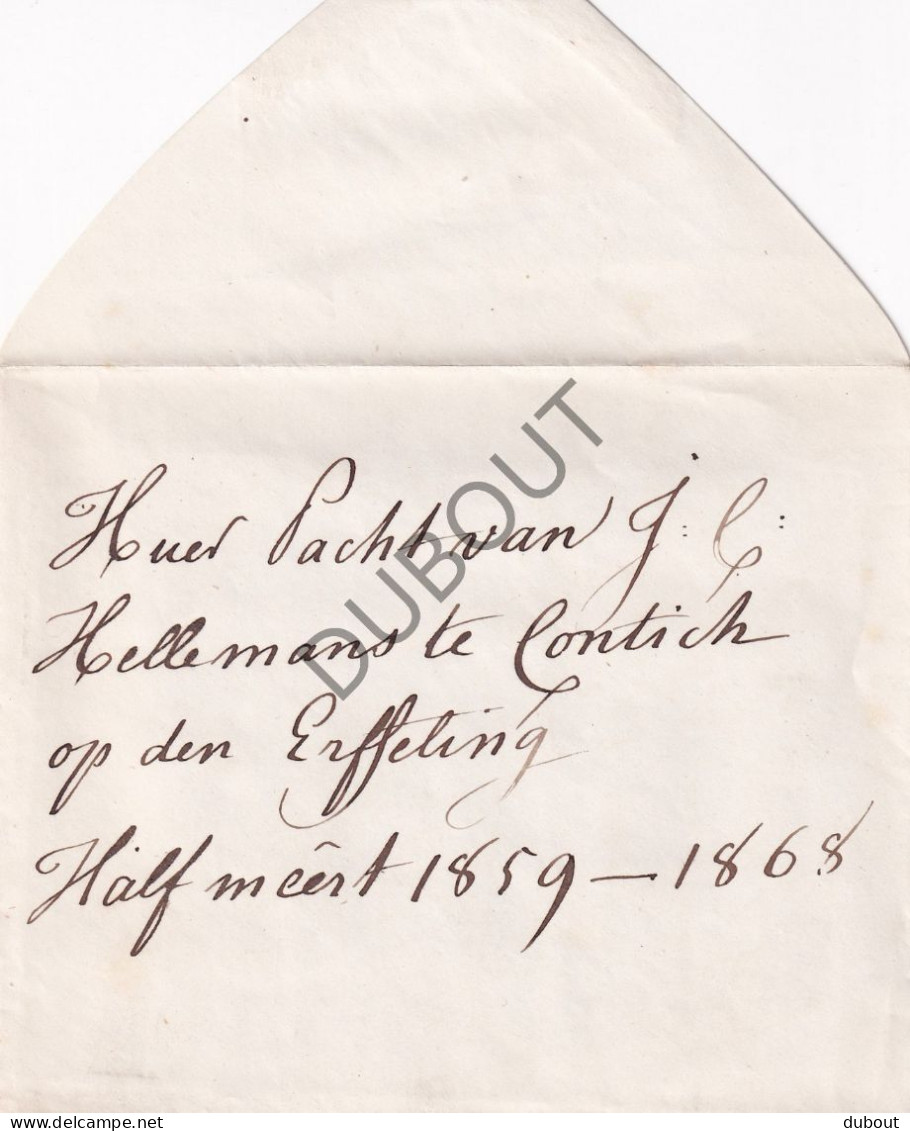 Huer Pacht van J: C:
Hellemans te Contich
op den Erffeling
Half mêêrt 1859 – 1868
DUBOUT
delcampe.net
dubout